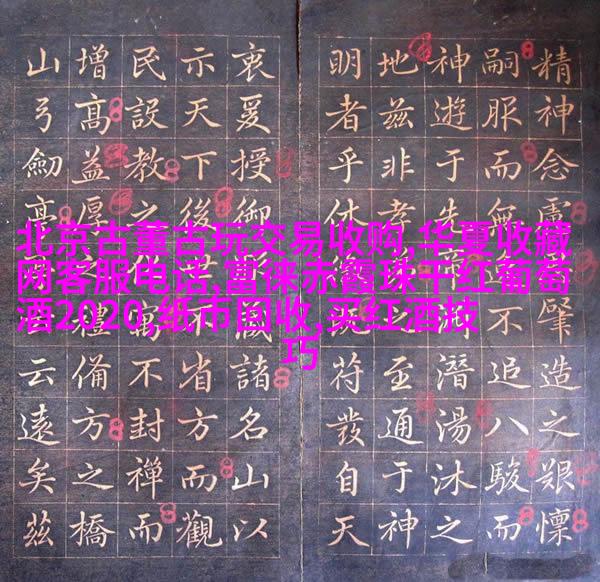 北京古董古玩交易收购,华夏收藏
网客服电话,富徕赤霞珠干红葡萄
酒2020,纸币回收,买红酒技
巧
精神念肇造之艱懍
嗣服而無不追八駿而
神遊于先之潛湯沐之
地茲非孝至通于神
明者乎休符發自天
衷爰授御諸名山以
示天下後省方而觀
民設教之寓不封禪而
增髙益厚備方之橋
山弓劒云遠矣茲